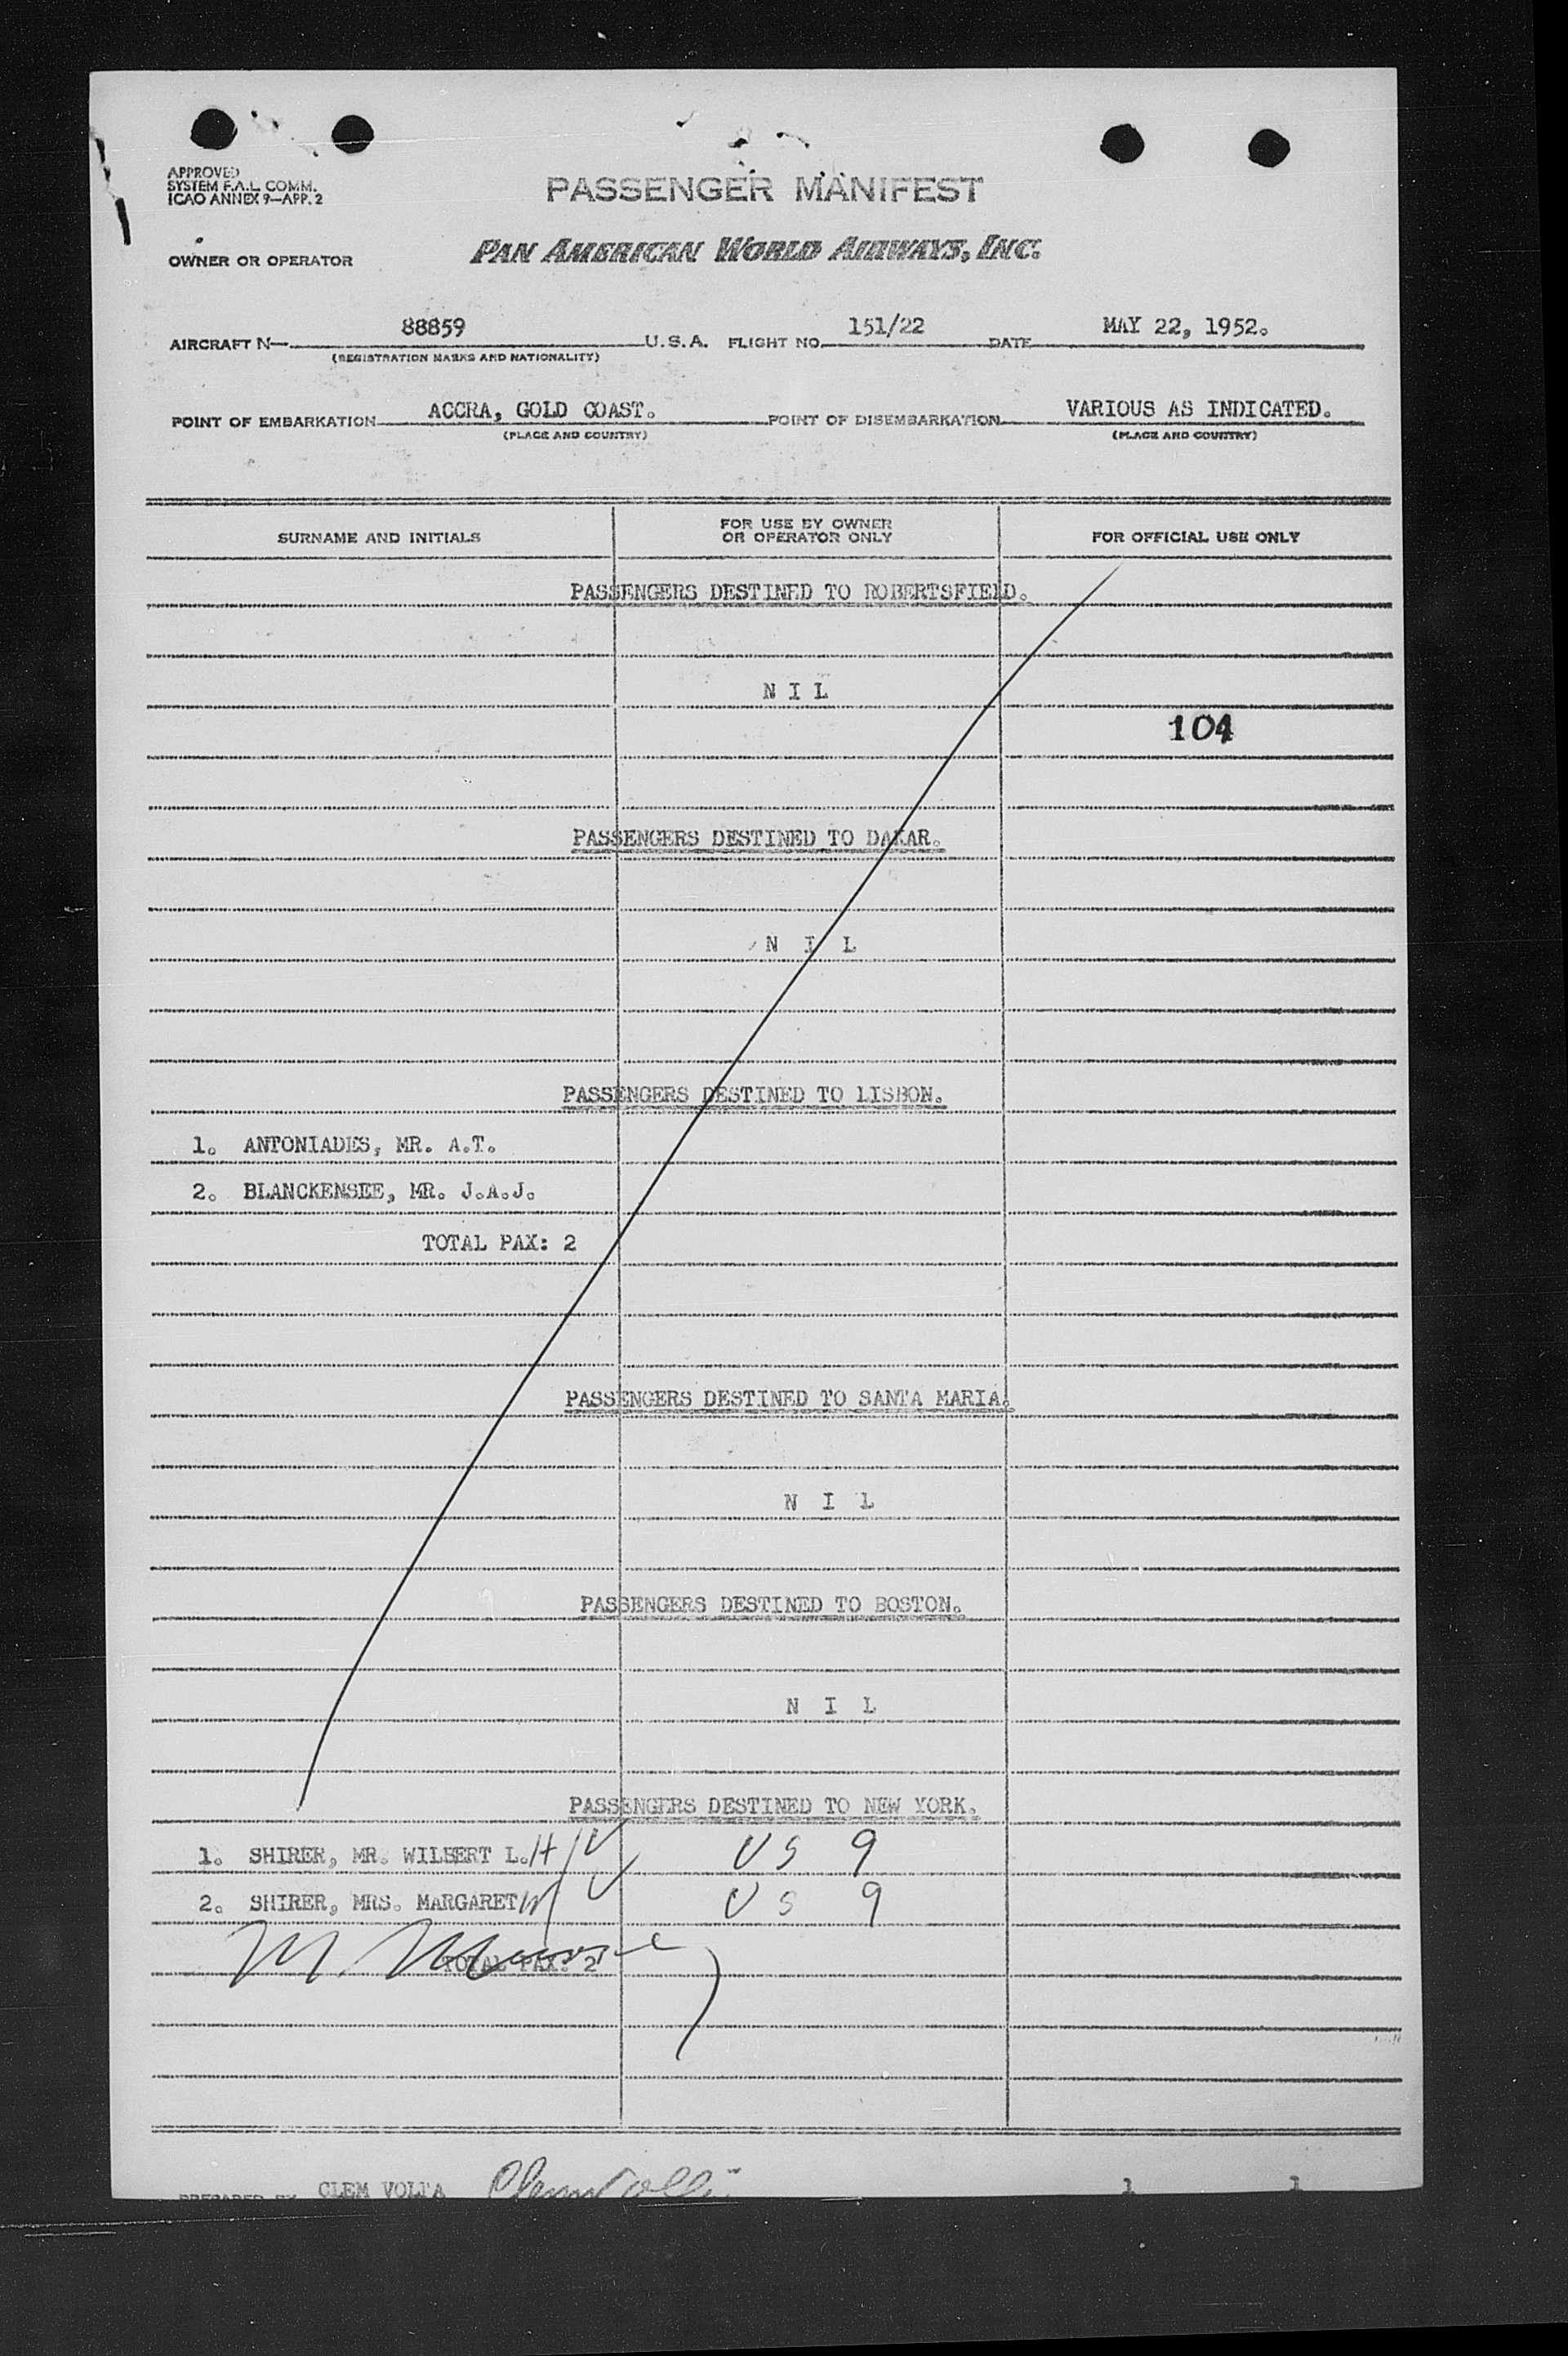 APPROVED
SYSTEM F.A.L. COMM.
ICAO ANNEX 9—APP. 2
PASSENGER MANIFEST
OWNER OR OPERATOR PAN AMERICAN WORLD AIRWAYS, INC.
AIRCRAFT N— 88859 U.S.A. FLIGHT NO. 151/22 DATE MAY 22, 1952.
(REGISTRATION MARKS AND NATIONALITY)
POINT OF EMBARKATION ACCRA, GOLD COAST. POINT OF DISEMBARKATION VARIOUS AS INDICATED.
(PLACE AND COUNTRY) (PLACE AND COUNTRY)
SURNAME AND INITIALS FOR USE BY OWNER OR OPERATOR ONLY FOR OFFICIAL USE ONLY
PASSENGERS DESTINED TO ROBERTSFIELD.
N I L
104
PASSENGERS DESTINED TO DAKAR.
N I L
PASSENGERS DESTINED TO LISBON.
1. ANTONIADES, MR. A.T.
2. BLANCKENSEE, MR. J.A.J.
TOTAL PAX: 2
PASSENGERS DESTINED TO SANTA MARIA.
N I L
PASSENGERS DESTINED TO BOSTON.
N I L
PASSENGERS DESTINED TO NEW YORK.
1. SHIRER, MR. WILBERT L. H US 9
2. SHIRER, MRS. MARGARET W US 9
TOTAL PAX: 2
PREPARED BY CLEM VOLTA 1 1